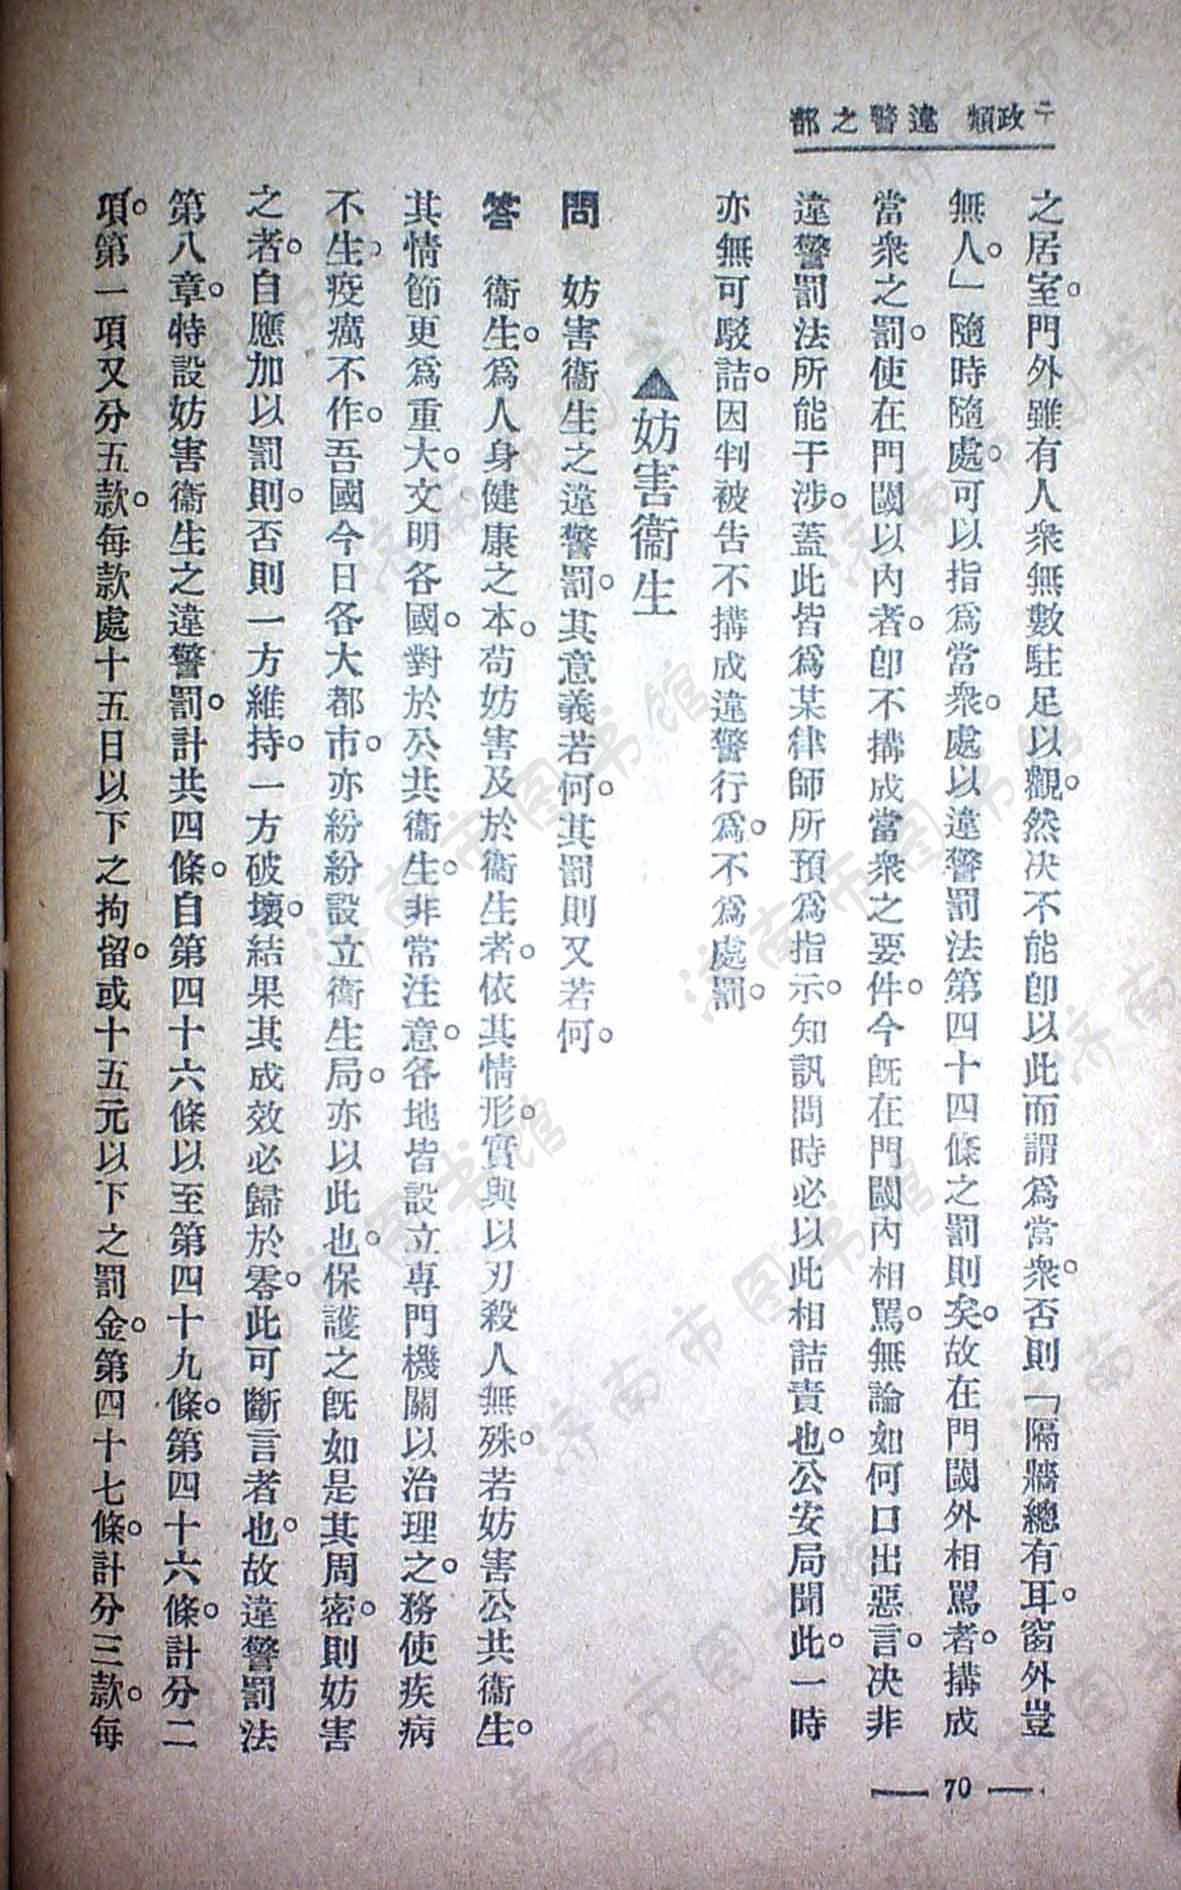 二政類 違警之部
之居室。門外雖有人衆無數駐足以觀。然决不能卽以此而謂爲當衆。否則「隔牆總有耳。窗外豈
無人。」隨時隨處。可以指爲當衆。處以違警罰法第四十四條之罰則矣。故在門閾外相罵者。搆成
當衆之罰。使在門閾以內者。卽不搆成當衆之要件。今旣在門閾內相罵。無論如何口出惡言。决非
違警罰法所能干涉。蓋此皆爲某律師所預爲指示。知訊問時必以此相詰責也。公安局聞此。一時
亦無可駁詰。因判被告不搆成違警行爲。不爲處罰。
▲妨害衞生
問 妨害衞生之違警罰。其意義若何。其罰則又若何。
答 衞生。爲人身健康之本。苟妨害及於衞生者。依其情形。實與以刃殺人無殊。若妨害公共衞生。
其情節更爲重大。文明各國。對於公共衞生。非常注意。各地皆設立專門機關以治理之。務使疾病
不生。疫癘不作。吾國今日各大都市。亦紛紛設立衞生局。亦以此也。保護之旣如是其周密。則妨害
之者。自應加以罰則。否則一方維持。一方破壞。結果其成效必歸於零。此可斷言者也。故違警罰法
第八章。特設妨害衞生之違警罰。計共四條。自第四十六條以至第四十九條。第四十六條。計分二
項。第一項又分五款。每款處十五日以下之拘留。或十五元以下之罰金。第四十七條。計分三款。每
— 70 —
济南市图书馆
济南市图书馆
济南市图书馆
济南市图书馆